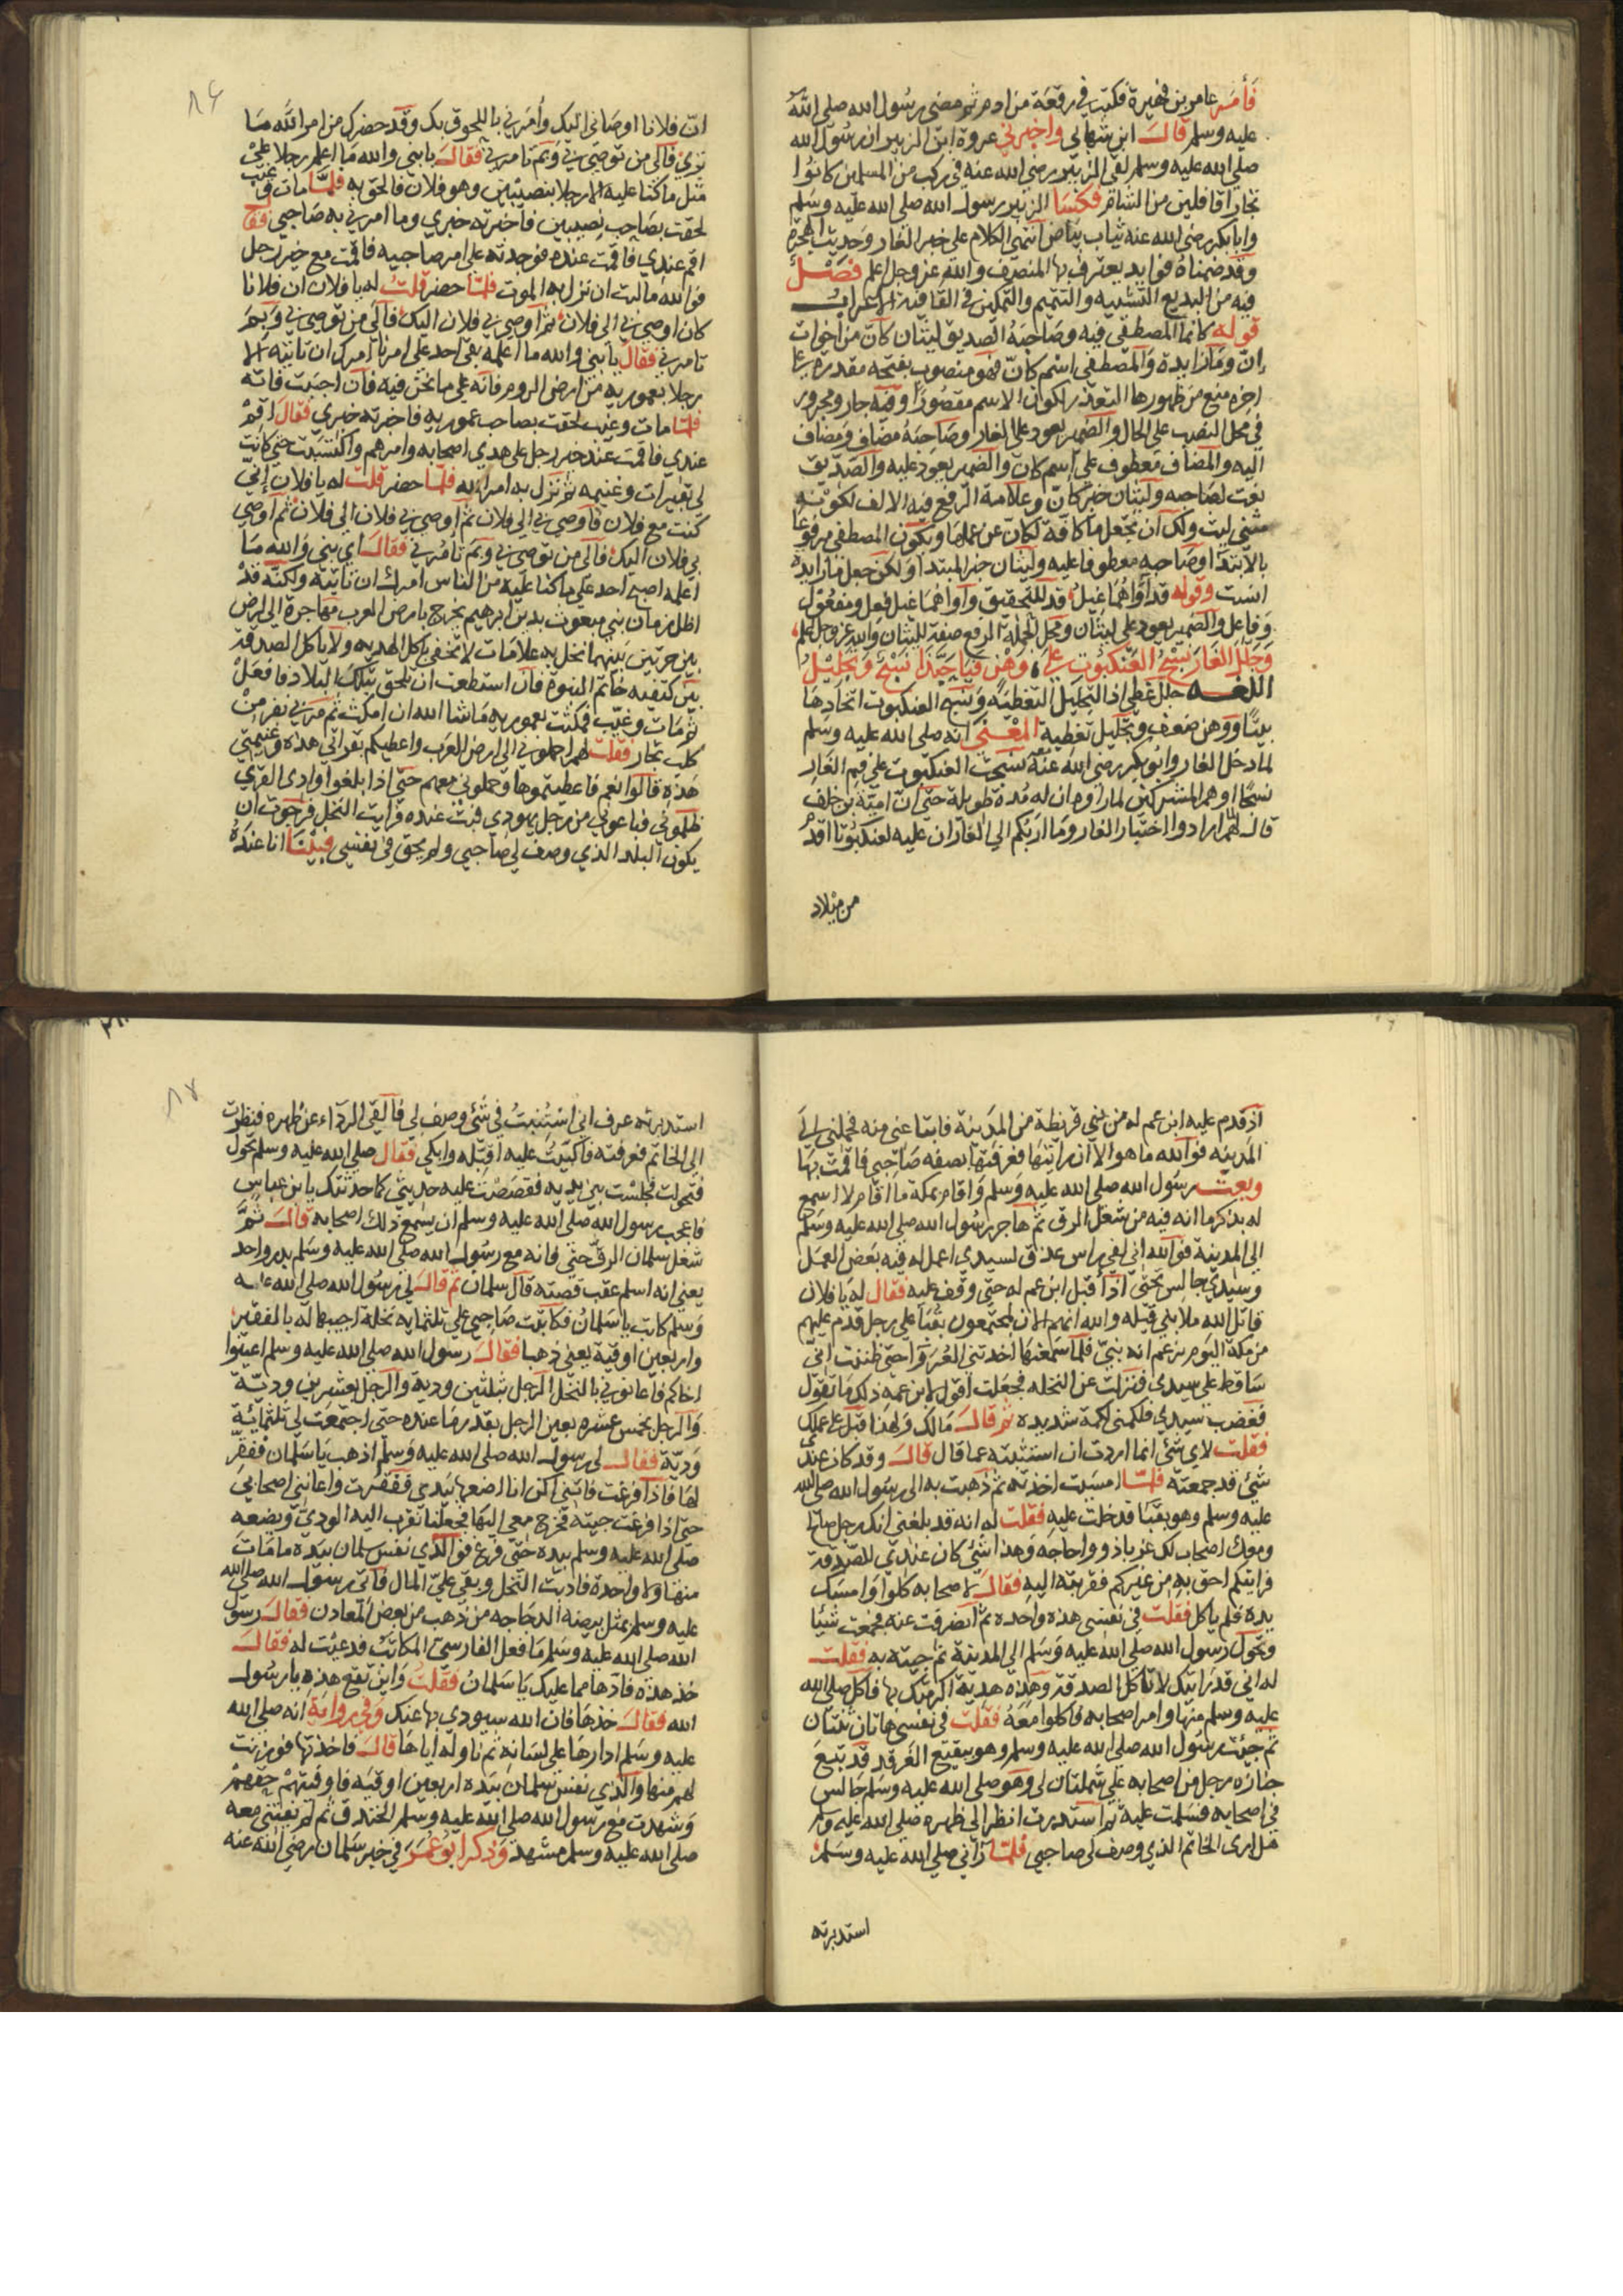 فأمر عامر بن فهيرة فكتب في رقعة من ادم ثم مضي رسول الله صلي الله
عليه وسلم قال ابن شهاب واخبرني عروة ابن الزبير ان رسول الله
صلي الله عليه وسلم لقي الزبير رضي الله عنه في ركب من المسلمين كانوا
تجارا قافلين من الشام فكسا الزبير رسول الله صلي الله عليه وسلم
وابا بكر رضي الله عنه ثياب بياض انتهي الكلام علي خبر الغار وحديث الهجرة
وقد ضمناه فوايد يعترف بها المنصف والله عز وجل اعلم فصل
فيه من البديع التشبيه والتتميم والتمكين في القافية الاعراب
قوله كانما المصطفي فيه وصاحبه الصديق ليثان كأن من اخوات
إن وما زايدة والمصطفي اسم كأن فهو منصوب بفتحة مقدرة علي
اخره منع من ظهورها التعذر لكون الاسم مقصورا وفيه جار ومجرور
في محل النصب علي الحال والضمير يعود علي الغار وصاحبه مضاف ومضاف
اليه والمضاف معطوف علي اسم كان والضمير يعود عليه والصديق
نعت لصاحبه وليثان خبر كأن وعلامة الرفع فيه الالف لكونه
مثني ليث ولك ان تجعل ما كافة لكان عن عملها ويكون المصطفي مرفوعا
بالابتدا وصاحبه معطوفا عليه وليثان خبر المبتدا ولكن جعل ما زايدة
انسب وقوله قد آواهما غيل قد للتحقيق وآواهما غيل فعل ومفعول
وفاعل والضمير يعود علي ليثان ومحل الجملة الرفع صفة لليثان والله عز وجل اعلم
وجلل الغار نسج العنكبوت علي وهن فيا حبذا نسج وتجليل
اللغه جلل غطي اذ التجليل التغطية ونسج العنكبوت اتخاذها
بيتا ووهن ضعف وتجليل تغطية المعني انه صلي الله عليه وسلم
لما دخل الغار وابو بكر رضي الله عنه نسجت العنكبوت علي فم الغار
نسجا اوهم المشركين لما راوه ان له مدة طويلة حتي ان امية بن خلف
قال لهم لما ارادوا اختبار الغار وما اربكم الي الغار ان عليه لعنكبوتا اقدم
من ميلاد
ان فلانا اوصاني اليك وأمرني باللحوق بك وقد حضرك من امر الله ما
تري فالي من توصي بي وبم تامرني فقال يا بني والله ما اعلم رجلا علي
مثل ما كنا عليه الا رجلا بنصيبين وهو فلان فالحق به فلما مات وغيب
لحقت بصاحب نصيبين فاخبرته خبري وما امرني به صاحبي فقال
اقم عندي فاقمت عنده فوجدته علي امر صاحبيه فاقمت مع خير رجل
فوالله ما لبث ان نزل به الموت فلما حضر قلت له يا فلان ان فلانا
كان اوصي بي الي فلان ثم اوصي بي فلان اليك فالي من توصي بي وبم
تامرني فقال يا بني والله ما اعلمه بقي احد علي امرنا امرك ان تاتيه الا
رجلا بعمورية من ارض الروم فانه علي ما نحن فيه فان احببت فاته
فلما مات وغيب لحقت بصاحب عمورية فاخبرته خبري فقال اقم
عندي فاقمت عند خير رجل علي هدي اصحابه وامرهم واكتسبت حتي كانت
لي بقيرات وغنيمه ثم نزل به امر الله فلما حضر قلت له يا فلان إني
كنت مع فلان فاوصي بي الي فلان ثم اوصي بي فلان الي فلان ثم اوصي
بي فلان اليك فالي من توصي بي وبم تامرني فقال اي بني والله ما
اعلمه اصبح احد علي ما كنا عليه من الناس امرك ان تاتيه ولكنه قد
اظل زمان نبي مبعوث بدين ابرهيم يخرج بارض العرب مهاجره الي ارض
بين حرتين بينهما نخل به علامات لا تخفي ياكل الهديه ولا ياكل الصدقة
بين كتفيه خاتم النبوة فان استطعت ان تلحق بتلك البلاد فافعل
ثم مات وغيب فمكثت بعمورية ما شا الله ان امكث ثم مر بي نفر من
كلب تجار فقلت لهم احملوني الي ارض العرب واعطيكم بقراتي هذه وغنيمتي
هذه قالوا نعم فاعطيتموها وحملوني معهم حتي اذا بلغوا وادي القري
ظلموني فباعوني من رجل يهودي فبت عنده ورايت النخل فرجوت ان
يكون البلد الذي وصف لي صاحبي ولم يحق في نفسي فبينا انا عنده
اذ قدم عليه ابن عم له من بني قريظة من المدينة فابتاعني منه فحملني الي
المدينه فوالله ما هو الا ان رايتها فعرفتها بصفه صاحبي فاقمت بها
وبعث رسول الله صلي الله عليه وسلم واقام بمكة ما اقام لا اسمع
له بذكر ما انه فيه من شغل الرق ثم هاجر رسول الله صلي الله عليه وسلم
الي المدينة فوالله اني لفي راس عذق لسيدي اعمل له فيه بعض العمل
وسيدي جالس تحتي اذ اقبل ابن عم له حتي وقف عليه فقال له يا فلان
قاتل الله ملا بني قيله والله انهم الان لمجتمعون بقبا علي رجل قدم عليهم
من مكة اليوم يزعم انه نبي فلما سمعتها اخذتني العروا حتي ظننت اني
ساقط علي سيدي فنزلت عن النخله فجعلت اقول لابن عمه ذلك ما تقول
فغضب سيدي فلكمني لكمة شديده ثم قال مالك ولهذا اقبل علي عملك
فقلت لاي شي انما اردت ان استثبته عما قال قال وقد كان عندي
شي قد جمعته فلما امسيت اخذته ثم ذهبت به الي رسول الله صلي الله
عليه وسلم وهو بقبا فدخلت عليه فقلت له انه قد بلغني انك رجل صالح
ومعك اصحاب لك غربا ذووا حاجه وهذا شي كان عندي للصدقة
فرايتكم احق به من غيركم فقربته اليه فقال لاصحابه كلوا وامسك
يده فلم ياكل فقلت في نفسي هذه واحده ثم انصرفت عنه فجمعت شيئا
وتحول رسول الله صلي الله عليه وسلم الي المدينة ثم جيته به فقلت
له اني قد رايتك لا تاكل الصدقة وهذه هدية اكرمتك بها فاكل صلي الله
عليه وسلم منها وامر اصحابه فاكلوا معه فقلت في نفسي هاتان ثنتان
ثم جيت رسول الله صلي الله عليه وسلم وهو ببقيع الغرقد قد تبع
جنازه رجل من اصحابه علي شملتان لي وهو صلي الله عليه وسلم جالس
في اصحابه فسلمت عليه ثم استدرت انظر الي ظهره صلي الله عليه وسلم
هل اري الخاتم الذي وصف لي صاحبي فلما راني صلي الله عليه وسلم
استدبرته
استدبرته عرف اني استثبت في شي وصف لي فالقي الرداء عن ظهره فنظرت
الي الخاتم فعرفته فاكببت عليه اقبله وابكي فقال صلي الله عليه وسلم تحول
فتحولت فجلست بين يديه فقصصت عليه حديثي كما حدثتك يا بن عباس
فاعجب رسول الله صلي الله عليه وسلم ان يسمع ذلك اصحابه قال ثم
شغل سلمان الرق حتي فاته مع رسول الله صلي الله عليه وسلم بدر واحد
يعني انه اسلم عقب قصته قال سلمان ثم قال لي رسول الله صلي الله عليه
وسلم كاتب يا سلمان فكاتبت صاحبي علي ثلثمايه نخلة احييها له بالفقير
واربعين اوقية يعني ذهبا فقال رسول الله صلي الله عليه وسلم اعينوا
اخاكم فاعانوني بالنخل الرجل بثلثين ودية والرجل بعشرين ودية
والرجل بخمس عشره يعين الرجل بقدر ما عنده حتي اجتمعت لي ثلثمائة
ودية فقال لي رسول الله صلي الله عليه وسلم اذهب يا سلمان ففقر
لها فاذا فرغت فاتني اكن انا اضعها بيدي ففقرت واعانني اصحابي
حتي اذا فرغت جيته فخرج معي اليها فجعلنا نقرب اليه الودي ويضعه
صلي الله عليه وسلم بيده حتي فرغ فوالذي نفس سلمان بيده ما مات
منها ولا واحدة فاديت النخل وبقي علي المال فاتي رسول الله صلي الله
عليه وسلم بمثل بيضه الدجاجه من ذهب من بعض المعادن فقال رسول
الله صلي الله عليه وسلم ما فعل الفارسي المكاتب فدعيت له فقال
خذ هذه فادها مما عليك يا سلمان فقلت واين تقع هذه يا رسول
الله فقال خذها فان الله سيودي بها عنك وفي رواية انه صلي الله
عليه وسلم ادارها علي لسانه ثم ناوله اياها قال فاخذتها فوزنت
لهم منها والذي نفس سلمان بيده اربعين اوقيه فاوفيتهم حقهم
وشهدت مع رسول الله صلي الله عليه وسلم الخندق ثم لم يفتني معه
صلي الله عليه وسلم مشهد وذكر ابو عمر في خبر سلمان رضي الله عنه